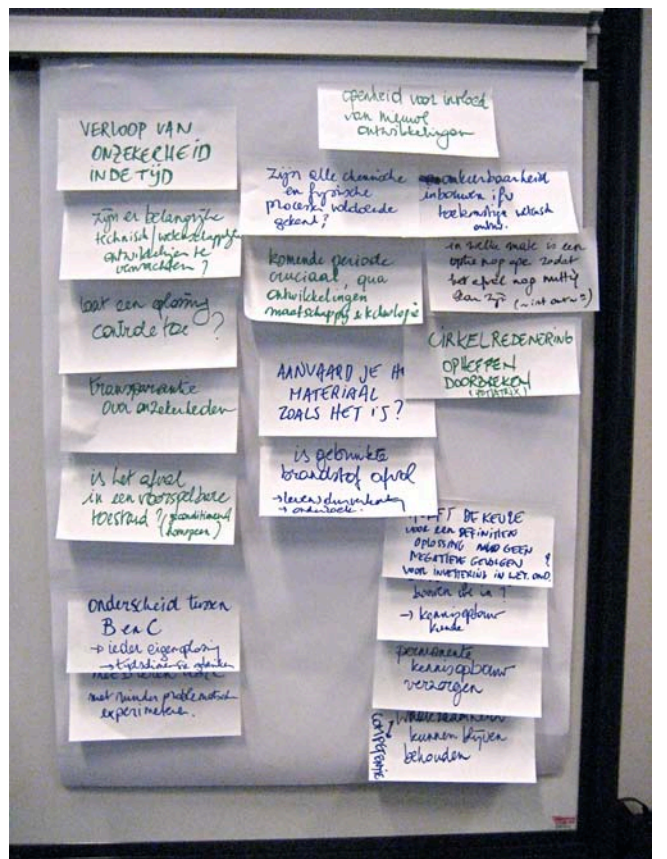 VERLOOP VAN
ONZEKERHEID
IN DE TIJD
zijn er belangrijke
technisch/wetenschappelijke
ontwikkelingen te
verwachten?
laat een oplossing
controle toe?
transparantie
over onzekerheden
is het afval
in een voorspelbare
toestand?
onderscheid tussen
B en C
→ ieder eigen oplossing
met minder problematisch
experimenteren.
openheid voor invloed
van nieuwe
ontwikkelingen
Zijn alle chemische
en fysische
processen voldoende
gekend?
komende periode
cruciaal, qua
ontwikkelingen
maatschappij & technologie
AANVAARD JE H
MATERIAAL
ZOALS HET IS?
is gebruikte
brandstof afval
→ levensduurverkorting
→ onderzoek
omkeerbaarheid
inbouwen ifv
toekomstige
in welke mate is een
optie nog open zodat
het afval nog nuttig
kan zijn
CIRKELREDENERING
OPHEFFEN
DOORBREKEN
HEEFT DE KEUZE
VOOR EEN DEFINITIEVE
OPLOSSING GEEN
NEGATIEVE GEVOLGEN ?
VOOR INVESTERING IN WET. OND.
→ kennisopbouw
permanente
kennisopbouw
verzorgen
kunnen blijven
behouden
COMPETENTIE